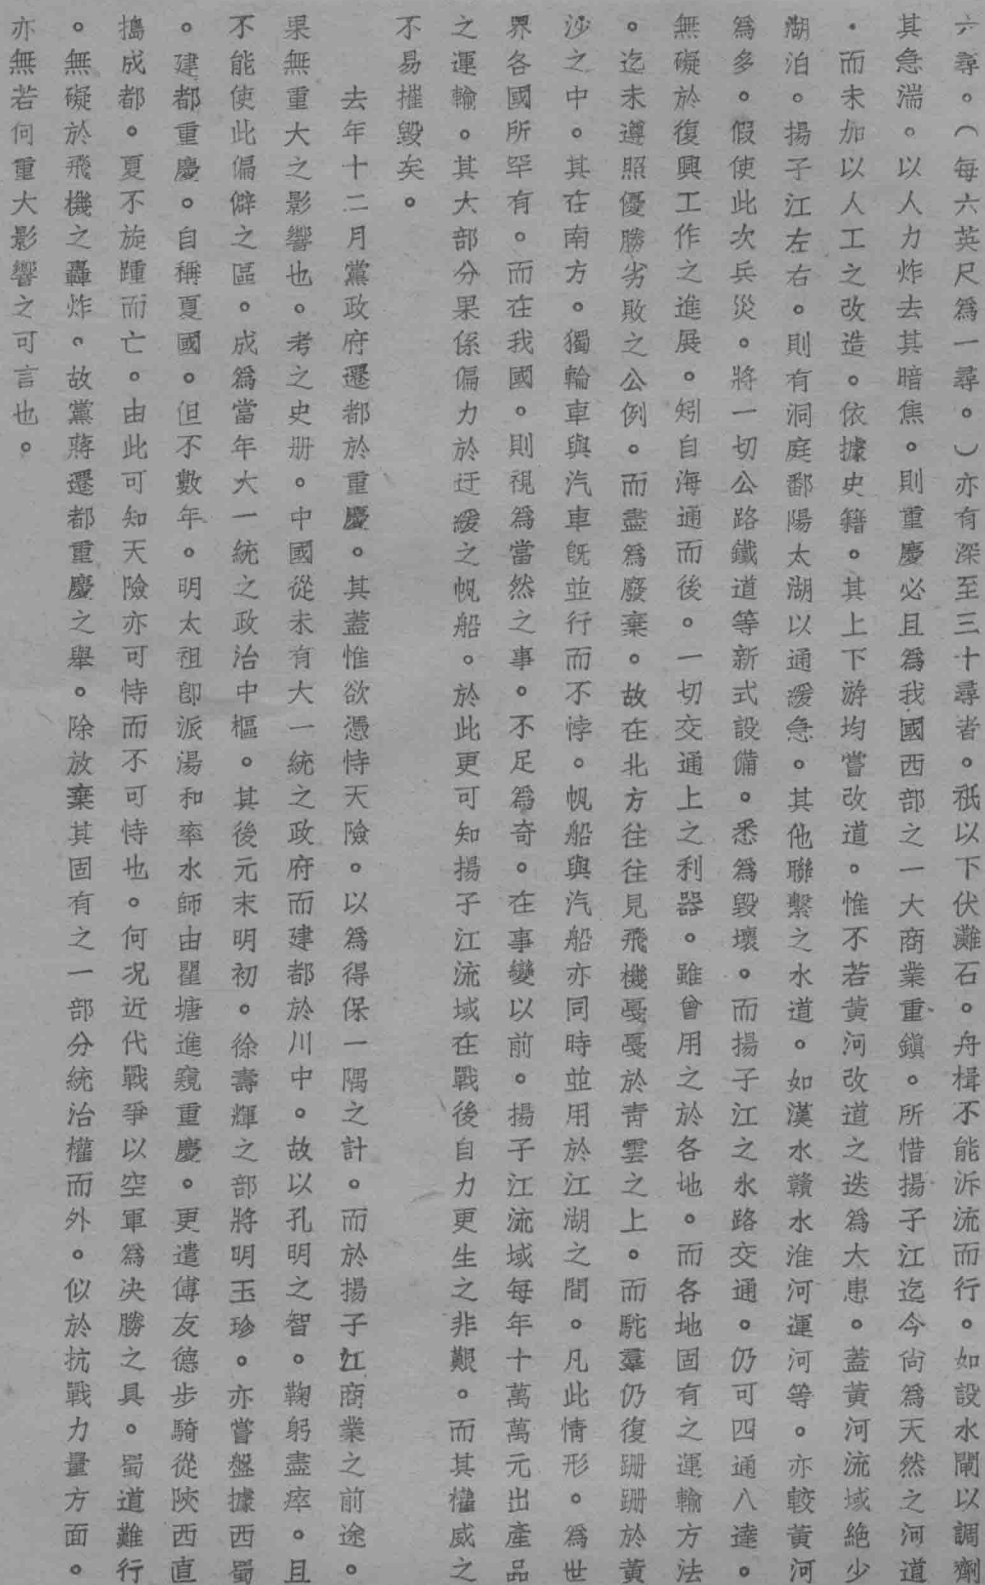 六尋。（每六英尺爲一尋。）亦有深至三十尋者。祇以下伏灘石。舟楫不能泝流而行。如設水閘以調劑
其急湍。以人力炸去其暗焦。則重慶必且爲我國西部之一大商業重鎭。所惜揚子江迄今尙爲天然之河道
。而未加以人工之改造。依據史籍。其上下游均嘗改道。惟不若黃河改道之迭爲大患。蓋黃河流域絶少
湖泊。揚子江左右。則有洞庭鄱陽太湖以通緩急。其他聯繫之水道。如漢水贛水淮河運河等。亦較黃河
爲多。假使此次兵災。將一切公路鐵道等新式設備。悉爲毀壞。而揚子江之水路交通。仍可四通八達。
無礙於復興工作之進展。矧自海通而後。一切交通上之利器。雖曾用之於各地。而各地固有之運輸方法
。迄未遵照優勝劣敗之公例。而盡爲廢棄。故在北方往往見飛機戞戞於靑雲之上。而駝羣仍復跚跚於黃
沙之中。其在南方。獨輪車與汽車旣並行而不悖。帆船與汽船亦同時並用於江湖之間。凡此情形。爲世
界各國所罕有。而在我國。則視爲當然之事。不足爲奇。在事變以前。揚子江流域每年十萬萬元出產品
之運輸。其大部分果係偏力於迂緩之帆船。於此更可知揚子江流域在戰後自力更生之非艱。而其權威之
不易摧毀矣。
去年十二月黨政府遷都於重慶。其蓋惟欲憑恃天險。以爲得保一隅之計。而於揚子江商業之前途。
果無重大之影響也。考之史册。中國從未有大一統之政府而建都於川中。故以孔明之智。鞠躬盡瘁。且
不能使此偏僻之區。成爲當年大一統之政治中樞。其後元末明初。徐壽輝之部將明玉珍。亦嘗盤據西蜀
。建都重慶。自稱夏國。但不數年。明太祖卽派湯和率水師由瞿塘進窺重慶。更遣傅友德步騎從陝西直
搗成都。夏不旋踵而亡。由此可知天險亦可恃而不可恃也。何况近代戰爭以空軍爲决勝之具。蜀道難行
。無礙於飛機之轟炸。故黨蔣遷都重慶之舉。除放棄其固有之一部分統治權而外。似於抗戰力量方面。
亦無若何重大影響之可言也。